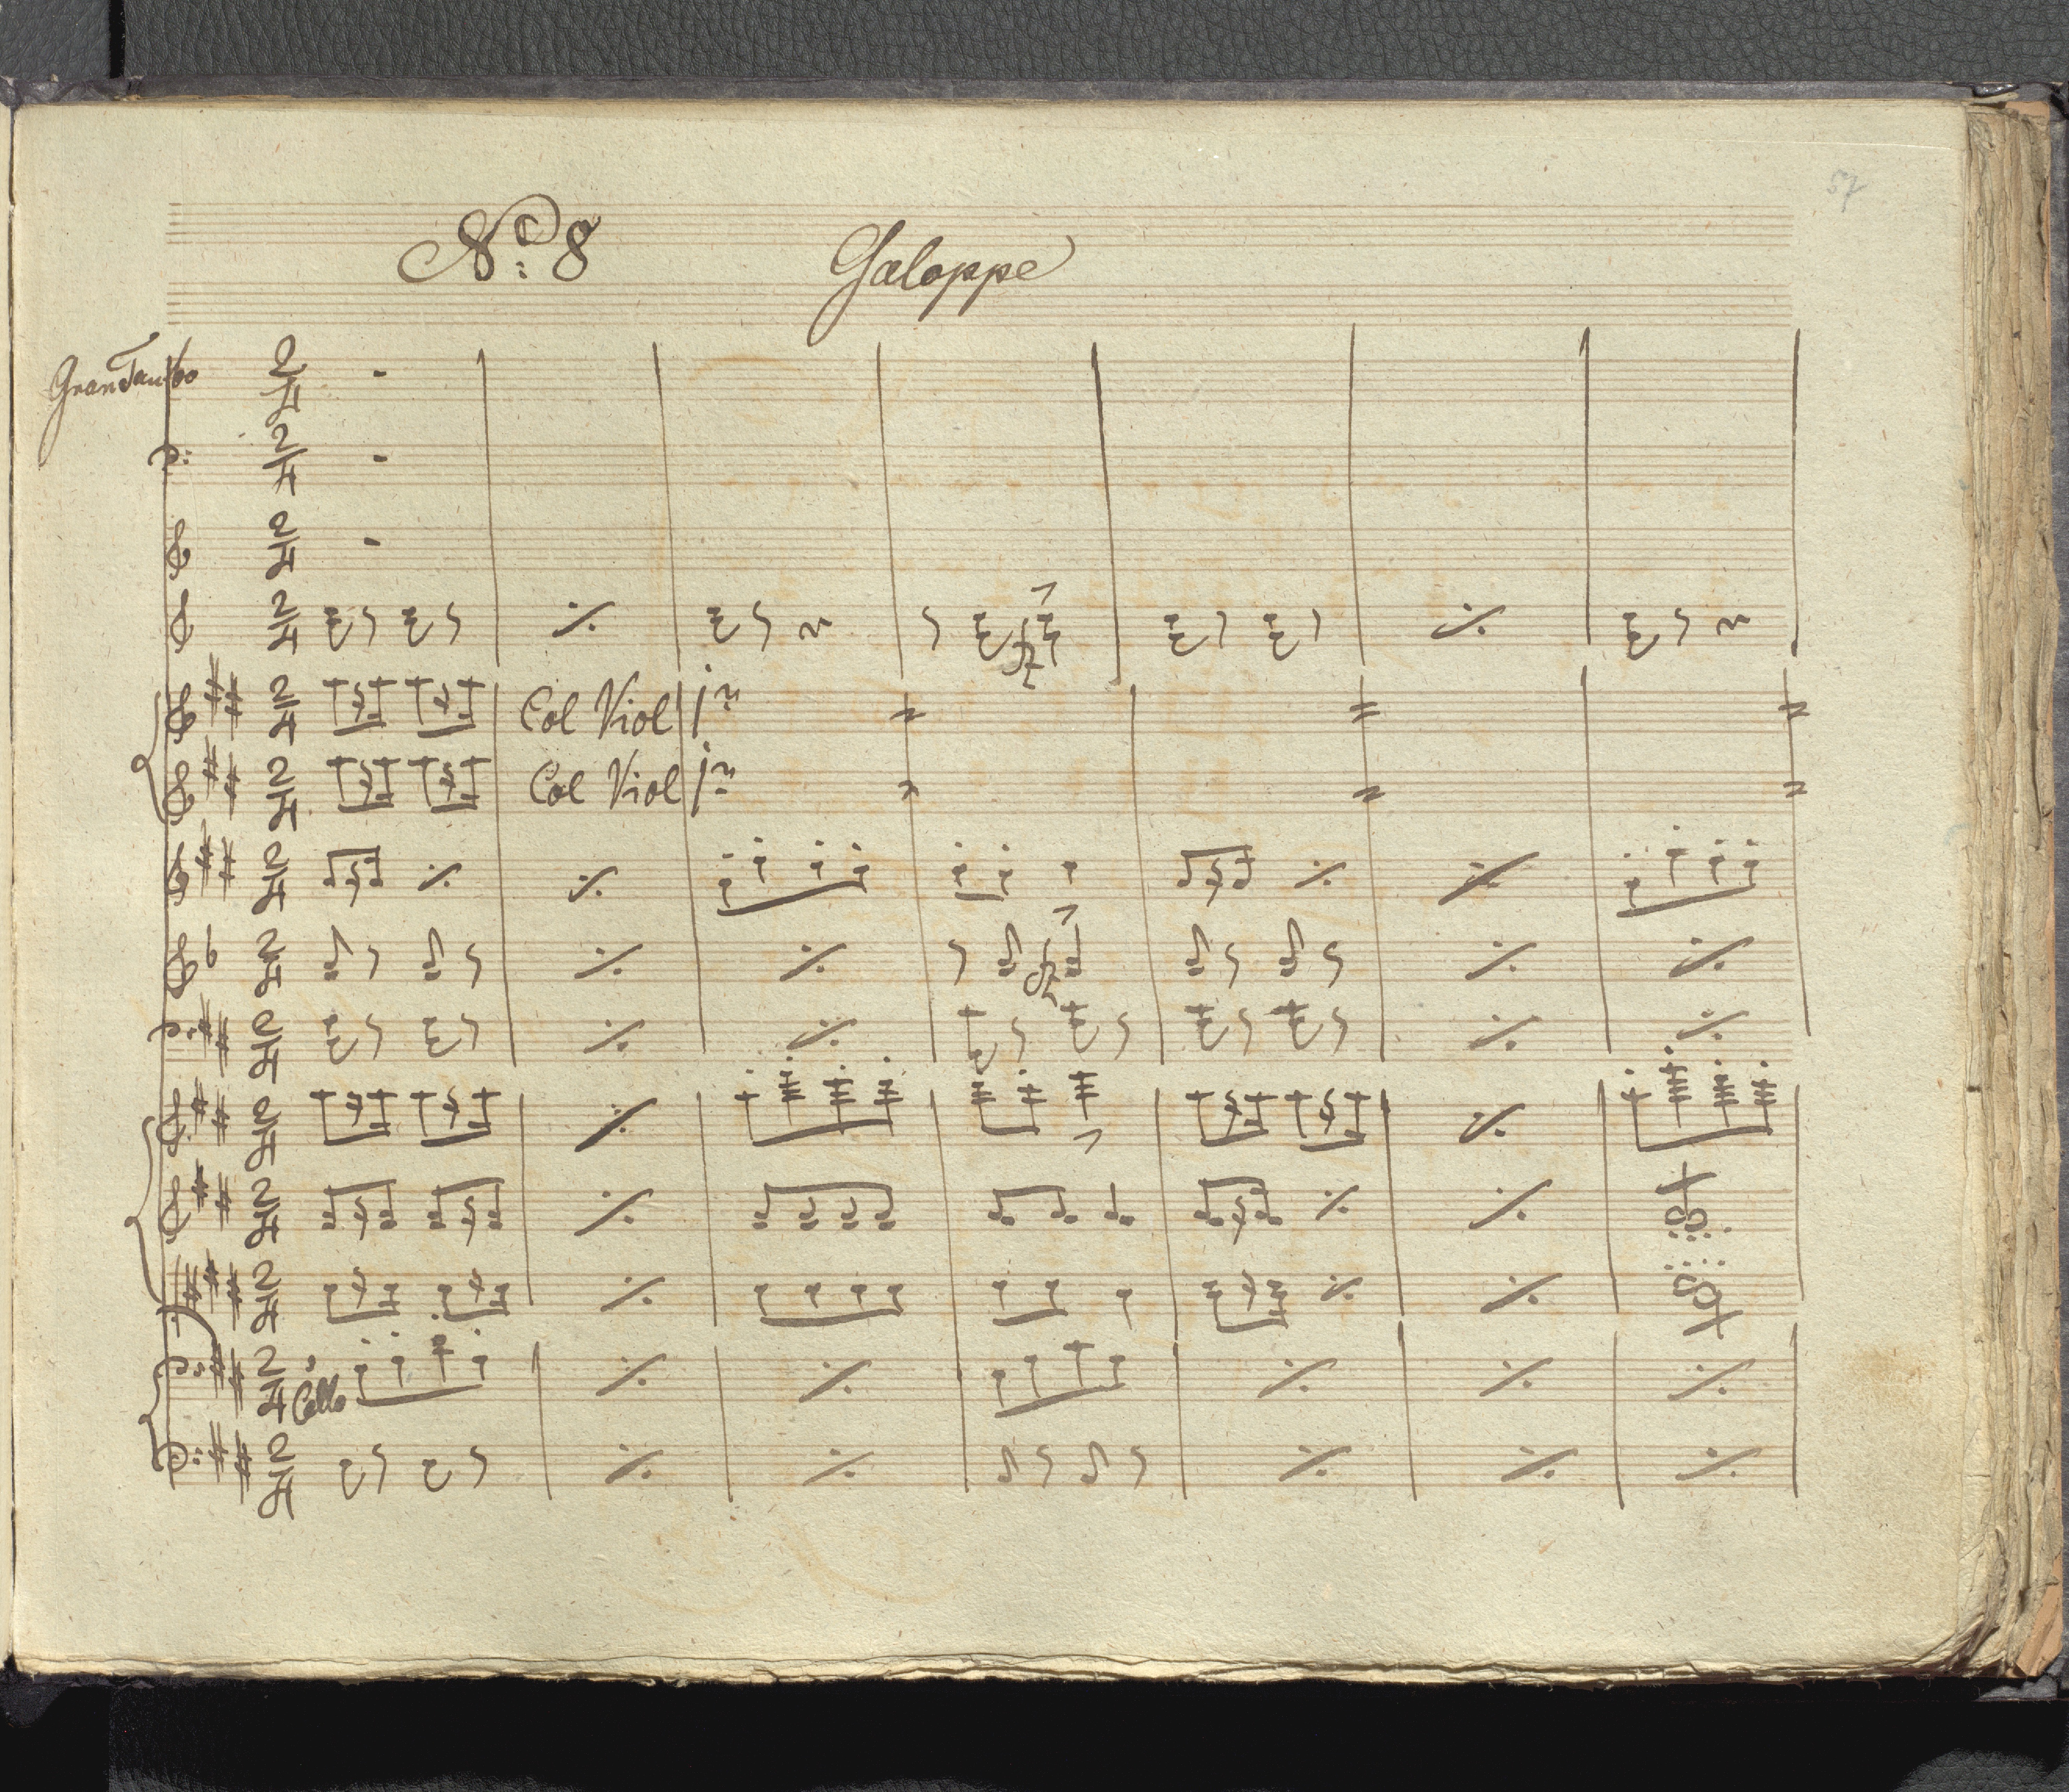 57
No: 8 Galoppe
Gran Tamb0
Col Viol 1mo
Col Viol 1mo
Cello